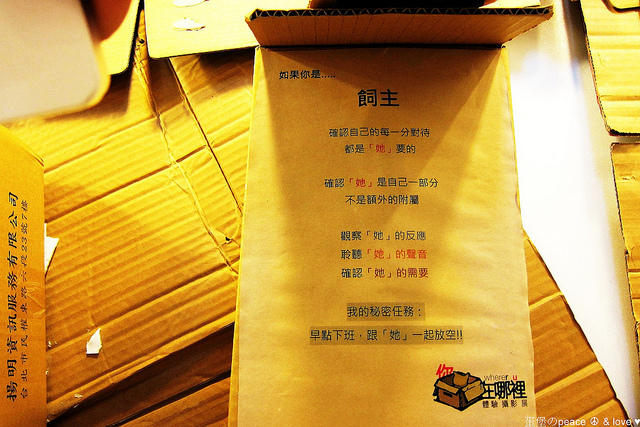 如果你是.....
飼主
確認自己的每一分對待
都是「她」要的
確認「她」是自己一部分
不是額外的附屬
觀察「她」的反應
聆聽「她」的聲音
確認「她」的需要
我的秘密任務：
早點下班，跟「她」一起放空!!
where r u
你在哪裡
體驗攝影展
揚明資訊服務有限公司
台北市民權東路六段23號7樓
のpeace ☮ & love ♥